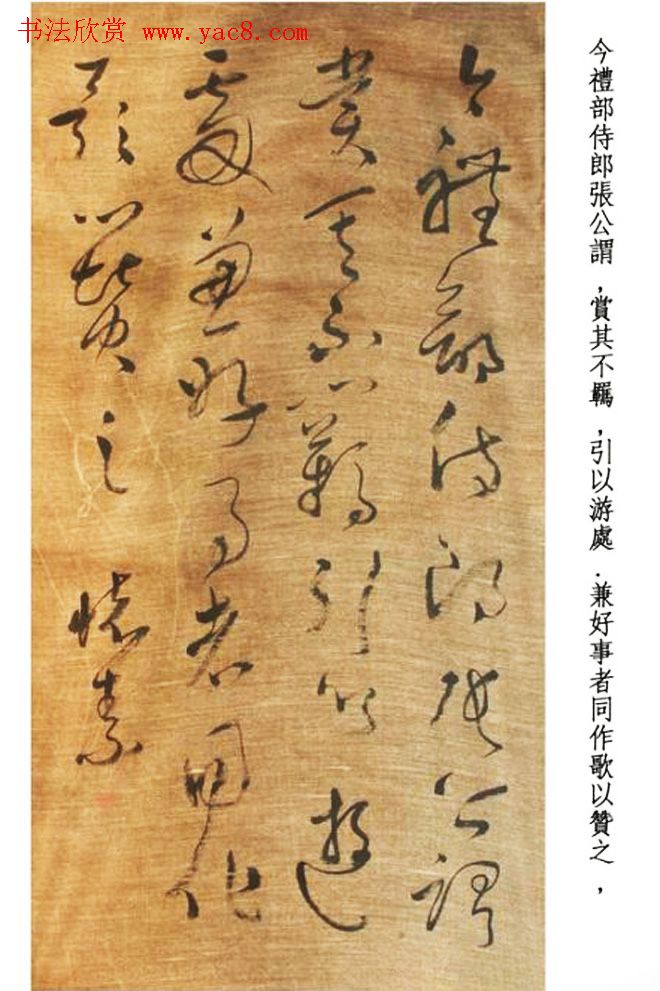 书法欣赏 www.yac8.com
今禮部侍郎張公謂
賞其不羈引以遊
處兼好事者同作
歌以贊之 懷素
今禮部侍郎張公謂，賞其不羈，引以游處．兼好事者同作歌以贊之，